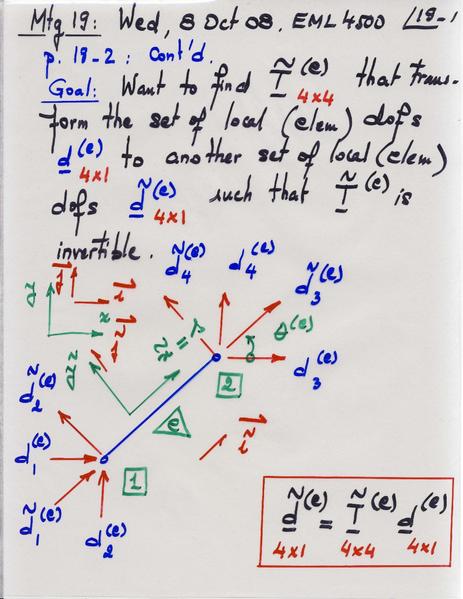 Mtg 19: Wed, 8 Oct 08. EML 4500 19-1
p. 18-2: Cont'd.
Goal: Want to find T̃^(e) 4x4 that trans-
form the set of local (elem) dofs
d^(e) 4x1 to another set of local (elem)
dofs d̃^(e) 4x1 such that T̃^(e) is
invertible.
d̃4^(e) d4^(e) d̃3^(e)
j i
y x
θ^(e)
ĩ = t̃
j̃
d3^(e)
d̃2^(e)
2
e
d1^(e)
ĩ
1
d̃1^(e)
d2^(e)
d̃^(e) = T̃^(e) d^(e)
4x1 4x4 4x1